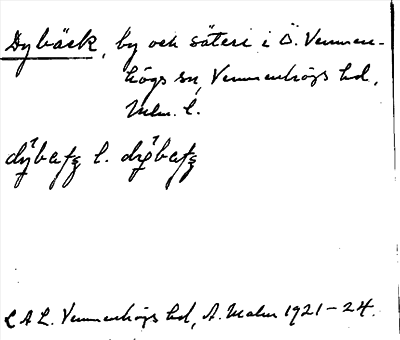 Dybäck, by och säteri i Ö. Vemmen-
högs sn, Vemmenhögs hd,
Mlm. l.
l.
L A L. Vemmenhögs hd, A. Malm 1921-24.